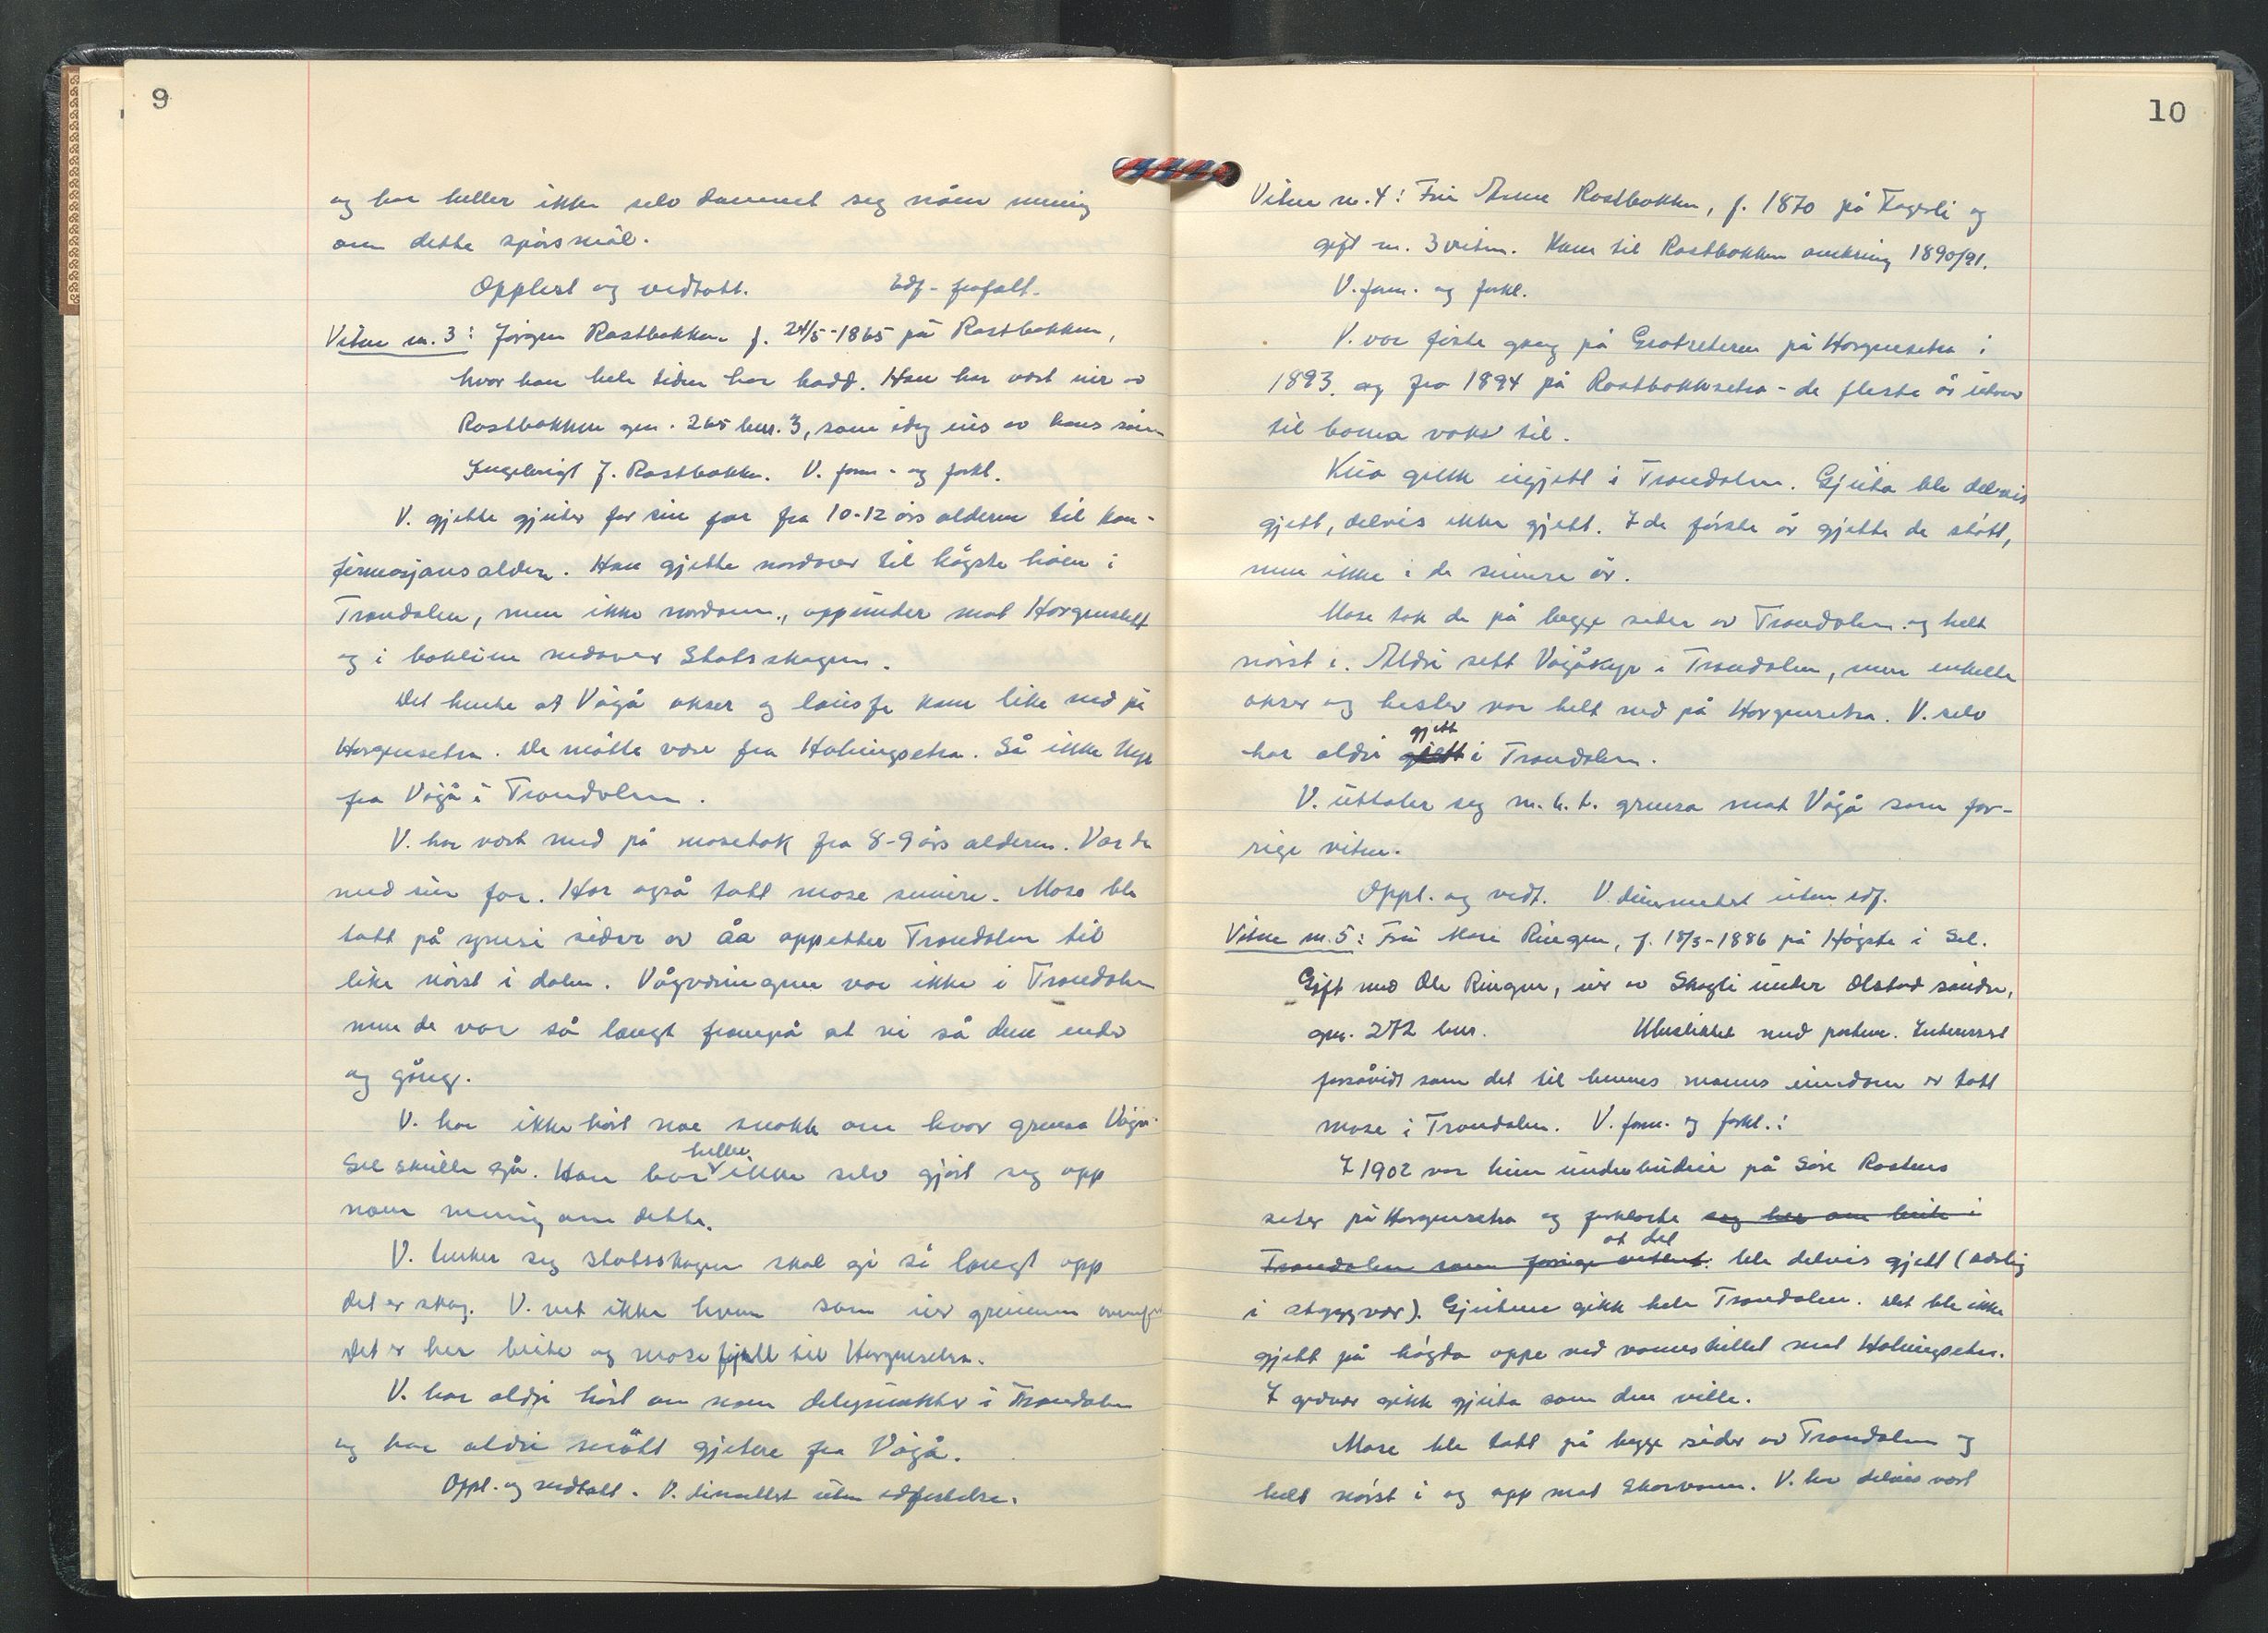 9
og har heller ikke selv dannet seg noen mening
om dette spørsmål.
Opplest og vedtatt. Edf. frafalt.
Vitne nr. 3: Jørgen Rostbakken f. 24/5-1865 på Rostbakken,
hvor han hele tiden har budd. Han har vært eier av
Rostbakken gnr. 265 bnr. 3, som idag eies av hans sønn
Ingebrigt J. Rostbakken. V. form. og forkl.
V. gjette gjeiter for sin far fra 10-12 års alderen til kon-
firmasjonsalder. Han gjette nordover til høgste høen i
Trondalen, men ikke nordom, oppunder mot Horgeuslett
og i baklien nedover Statsskogen.
Det hente at Vågå okser og lausfe kom like ned på
Horgensetra. De måtte være fra Holungsetra. Så ikke kyr
fra Vågå i Trondalen.
V. har vært med på mosetak fra 8-9 års alderen. Var da
med sin far. Har også tatt mose seinere. Mose ble
tatt på ymsi sider av åa oppetter Trondalen til
like nørst i dalen. Vågværingene var ikke i Trondalen
men de var så langt frampå at vi så dem enda
og gång.
V. har ikke hørt noe snakk om hvor grensa Vågå-
Sel skulle gå. Han har heller ikke selv gjort seg opp
noen mening om dette.
V. tenker seg statsskogen skal gå så langt opp
det er skog. V. vet ikke hvem som eier grunnen ovenfor
Det er her beite og mosefjell til Horgensetra.
V. har aldri hørt om noen delepunkter i Trondalen
og har aldri møtt gjetere fra Vågå.
Oppl. og vedtatt. V. dimittert uten edfestelse.
10
Vitne nr. 4: Fru Anne Rostbakken, f. 1870 på Fagerli og
gift m. 3 vitne. Kom til Rostbakken omkring 1890/91.
V. form. og forkl.
V. var første gang på Grotseteren på Horgensetra i
1893 og fra 1894 på Rostbakksetra - de fleste år utover
til barna voks til.
Kua gikk ugjett i Trondalen. Gjeita ble delvis
gjett, delvis ikke gjett. I de første år gjette de støtt,
men ikke i de seinere år.
Mose tok de på begge sider av Trondalen og helt
nørst i. Aldri sett Vågåkyr i Trondalen, men enkelte
okser og hester var helt ned på Horgensetra. V. selv
har aldri gjett i Trondalen.
V. uttaler seg m.h.t. grensa mot Vågå som for-
rige vitne.
Oppl. og vedt. V. dimittert uten edf.
Vitne nr. 5: Fru Mari Ringen, f. 18/3-1886 på Høgste i Sel.
Gift med Ole Ringen, eier av Skogli under Olstad søndre,
gnr. 272 bnr. Ubeslektet med partene. Interessert
forsåvidt som det til hennes manns eiendom er tatt
mose i Trondalen. V. form. og forkl.:
I 1902 var hun underbudeie på Søre Rostens
seter på Horgensetra og forklarte seg her om beite i
Trondalen som forrige vitne at det ble delvis gjett (særlig
i styggvær). Gjeitene gikk hele Trondalen. Det ble ikke
gjett på høgda oppe ved vannskillet mot Holungsetra.
I godvær gikk gjeita som den ville.
Mose ble tatt på begge sider av Trondalen og
helt nørst i og opp mot Skorvann. V. har delvis vært